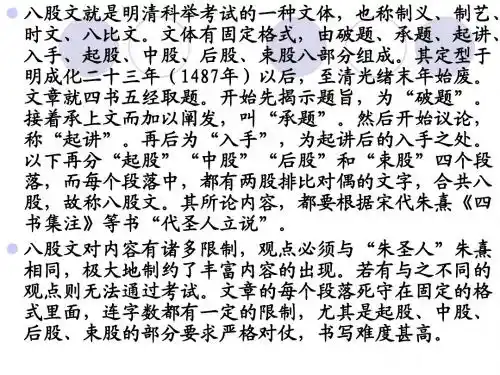 八股文就是明清科举考试的一种文体，也称制义、制艺、
时文、八比文。文体有固定格式，由破题、承题、起讲、
入手、起股、中股、后股、束股八部分组成。其定型于
明成化二十三年（1487年）以后，至清光绪末年始废。
文章就四书五经取题。开始先揭示题旨，为“破题”。
接着承上文而加以阐发，叫“承题”。然后开始议论，
称“起讲”。再后为“入手”，为起讲后的入手之处。
以下再分“起股”“中股”“后股”和“束股”四个段
落，而每个段落中，都有两股排比对偶的文字，合共八
股，故称八股文。其所论内容，都要根据宋代朱熹《四
书集注》等书“代圣人立说”。
八股文对内容有诸多限制，观点必须与“朱圣人”朱熹
相同，极大地制约了丰富内容的出现。若有与之不同的
观点则无法通过考试。文章的每个段落死守在固定的格
式里面，连字数都有一定的限制，尤其是起股、中股、
后股、束股的部分要求严格对仗，书写难度甚高。